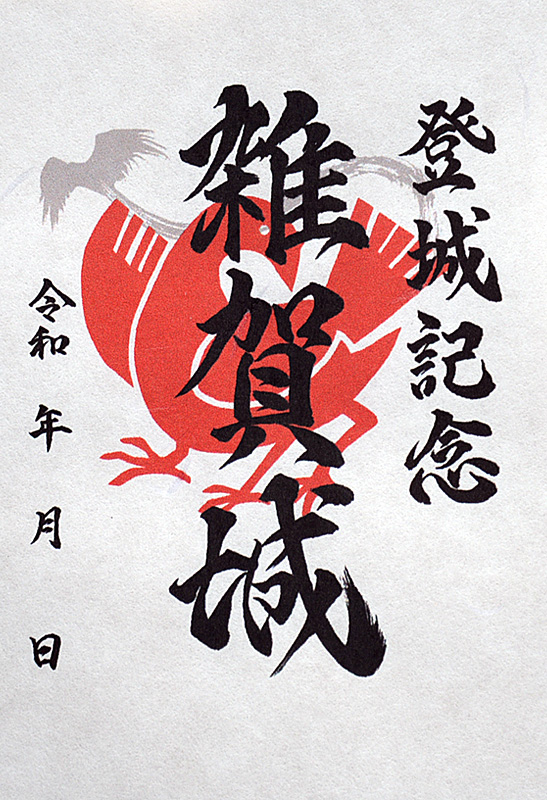 登城記念
雑賀城
令和 年 月 日